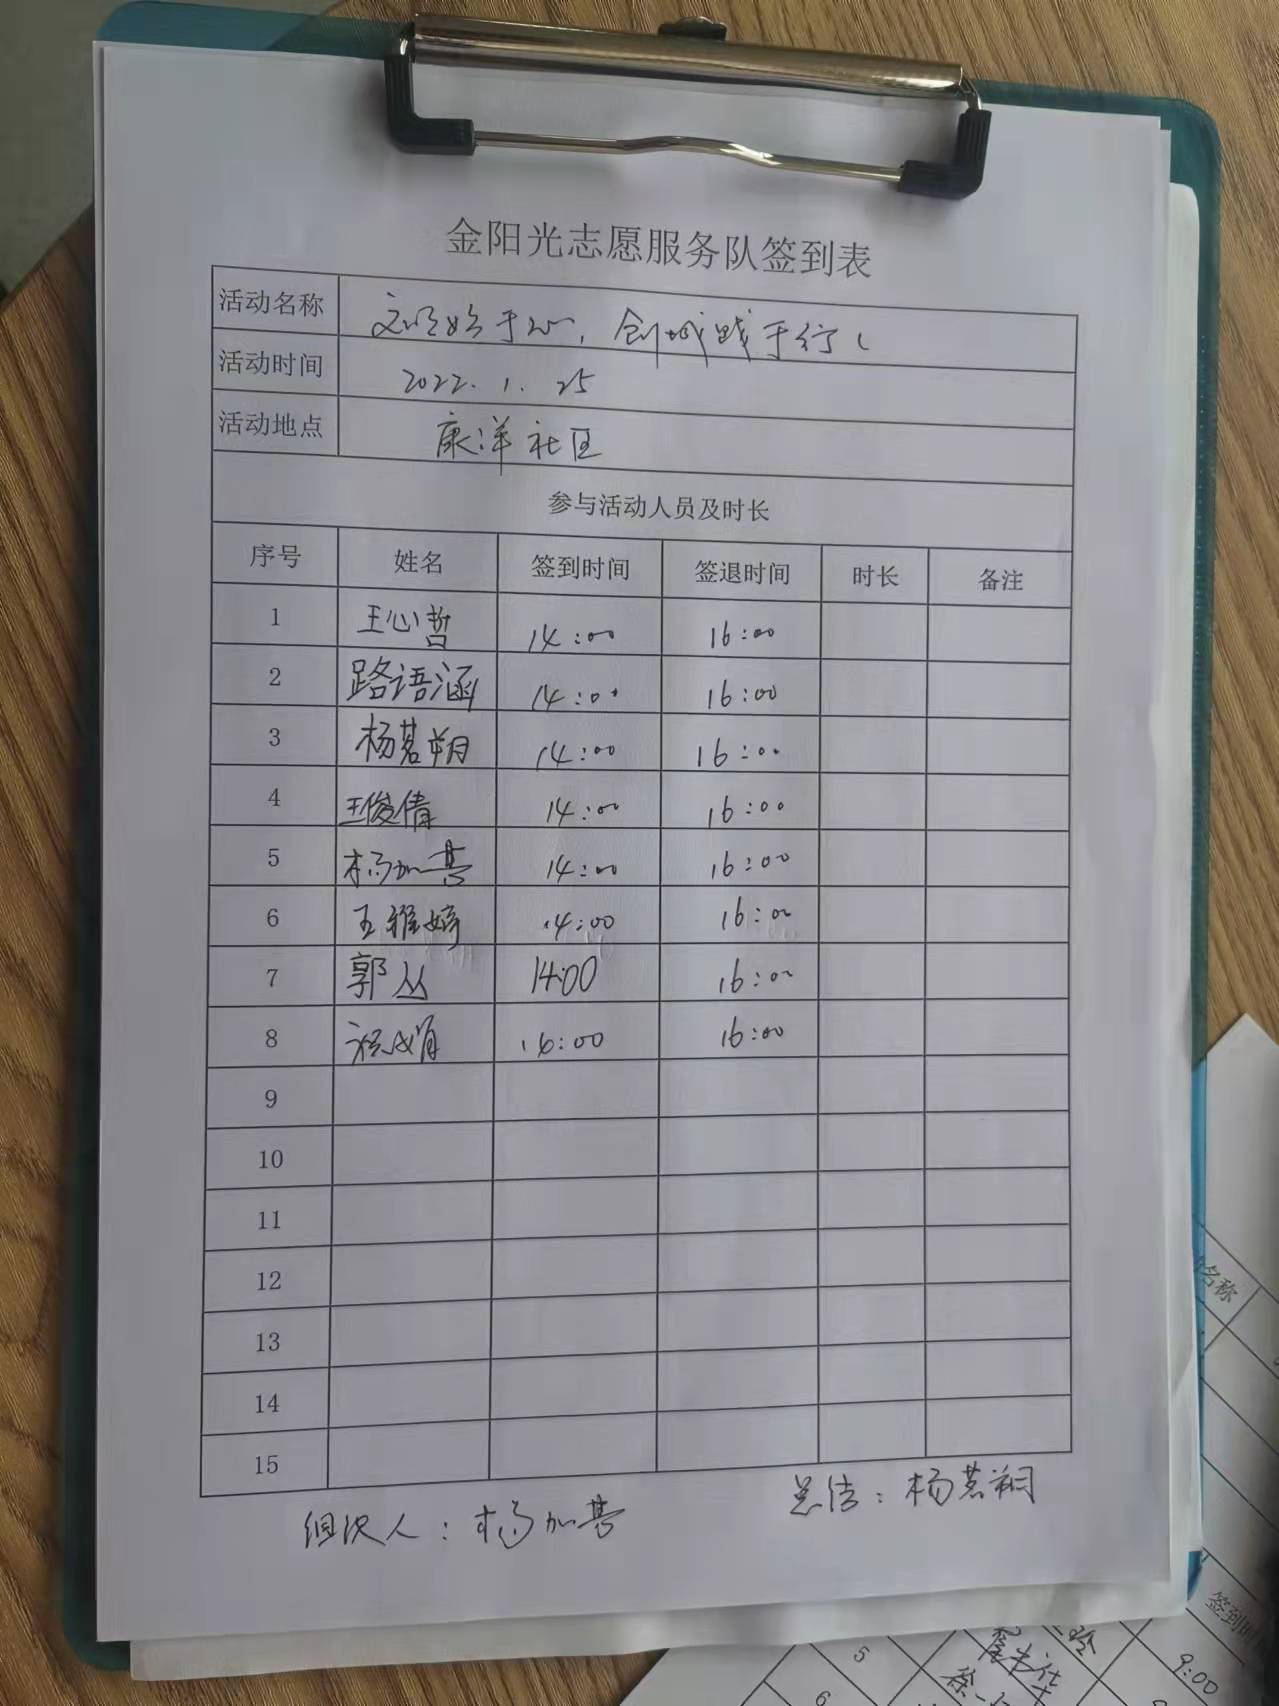 金阳光志愿服务队签到表
活动名称 文明始于心，创城践于行！
活动时间 2022.1.25
活动地点 康洋社区
参与活动人员及时长
序号 姓名 签到时间 签退时间 时长 备注
1 王心哲 14:00 16:00
2 路语涵 14:00 16:00
3 杨茗朔 14:00 16:00
4 王俊倩 14:00 16:00
5 杨加善 14:00 16:00
6 王雅婷 14:00 16:00
7 郭丛 14:00 16:00
8 14:00 16:00
9
10
11
12
13
14
15
组织人：杨加善
总结：杨茗朔
名称
签到时
5
9:00
6 徐一